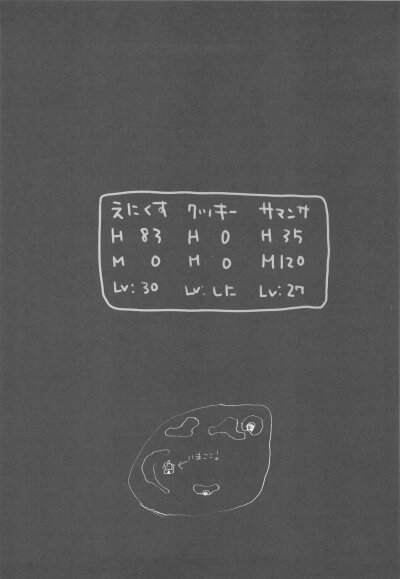 えにくす クッキー サマンサ
H 83 H 0 H 35
M 0 M 0 M120
Lv: 30 Lv: した Lv: 27
いまここ!